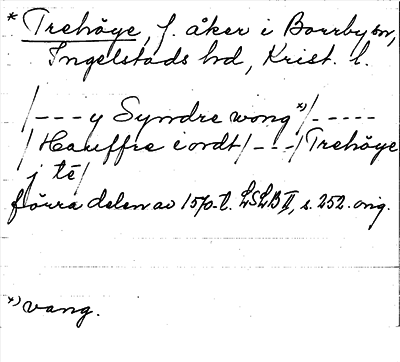 * Trehöye, f. åker i Borrby sn,
Ingelstads hd, Krist. l.
/---y Syndre wong *)/-----
/Hauffre iordt/---/Trehöye
j të/
förra delen av 1570-t. LSLB II, s. 252. orig.
*) vang.